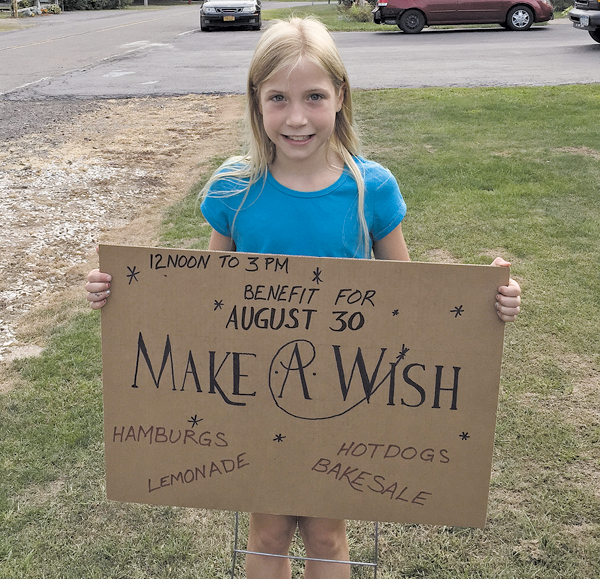 12NOON TO 3 PM
BENEFIT FOR
AUGUST 30
MAKE A WISH
HAMBURGS
HOTDOGS
LEMONADE
BAKESALE